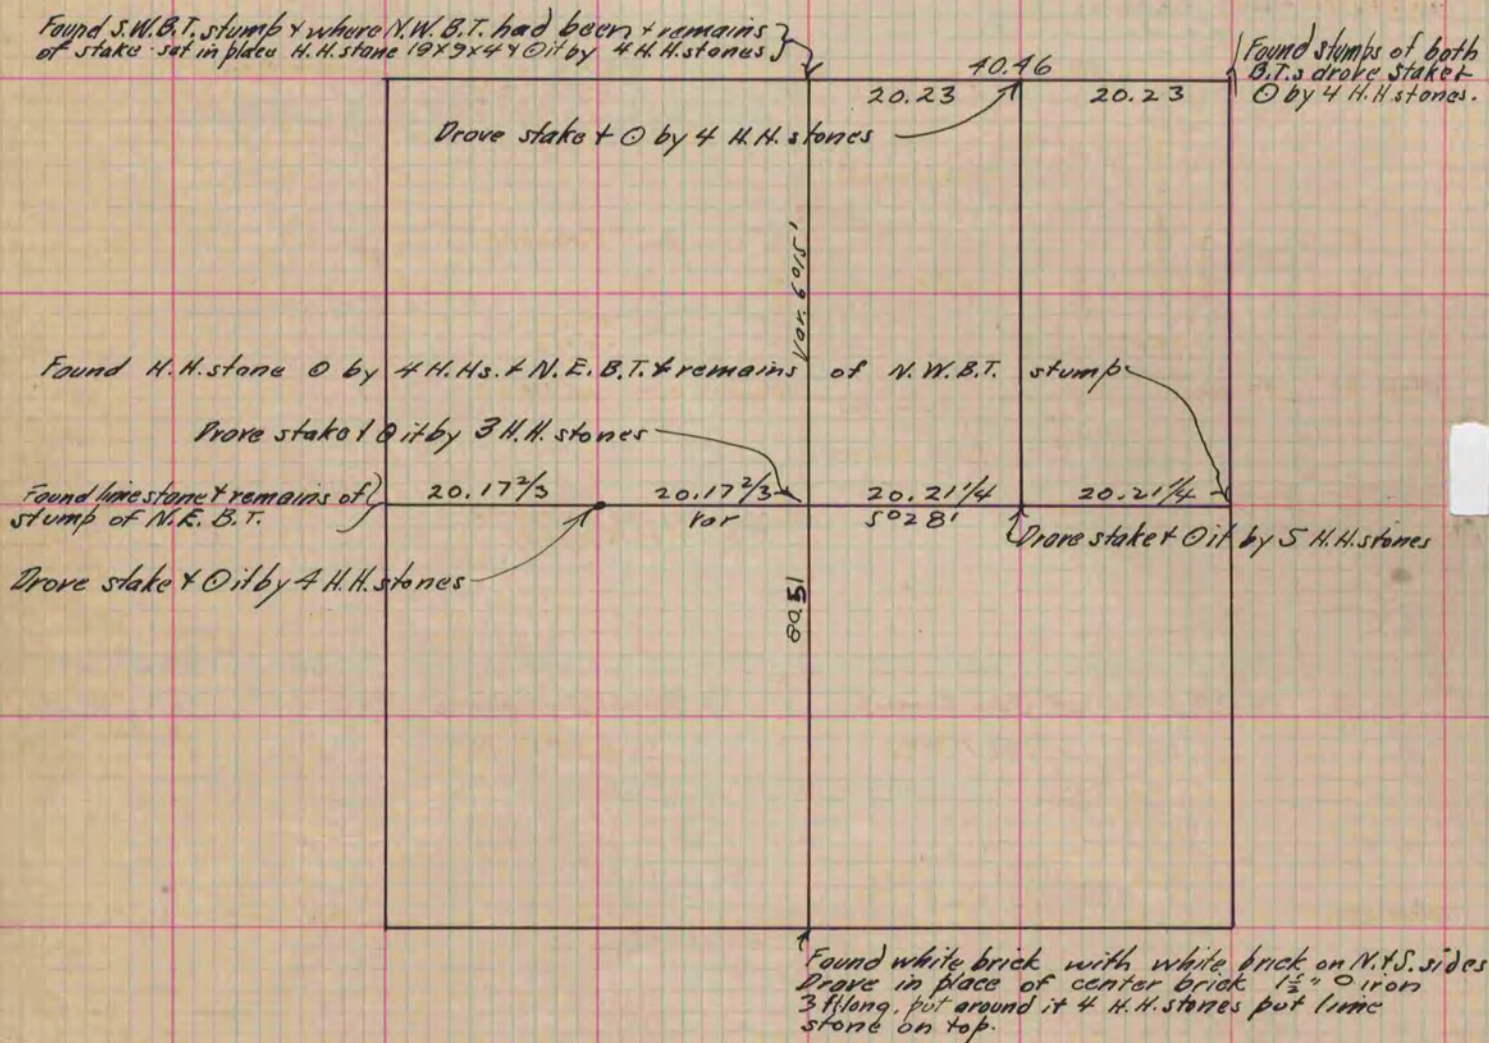 Found S.W.B.T. stump & where N.W.B.T. had been & remains
of stake set in place H.H. stone 19x9x4 & ⊙ it by 4 H.H. stones
Found stumps of both
B.T.s drove stake &
⊙ by 4 H.H. stones.
40.46
20.23 20.23
Drove stake & ⊙ by 4 H.H. stones
Var. 6°15'
Found H.H. stone ⊙ by 4 H.Hs. & N.E.B.T. & remains of N.W.B.T. stump
Drove stake & ⊙ it by 3 H.H. stones
Found limestone & remains of
stump of N.E. B.T.
20.17 2/3 20.17 2/3 20.21 1/4 20.21 1/4
Var 5°28'
Drove stake & ⊙ it by 5 H.H. stones
Drove stake & ⊙ it by 4 H.H. stones
80.51
Found white brick with white brick on N. & S. sides
Drove in place of center brick " ⊙ iron
3 ft long, put around it 4 H.H. stones put lime
stone on top.